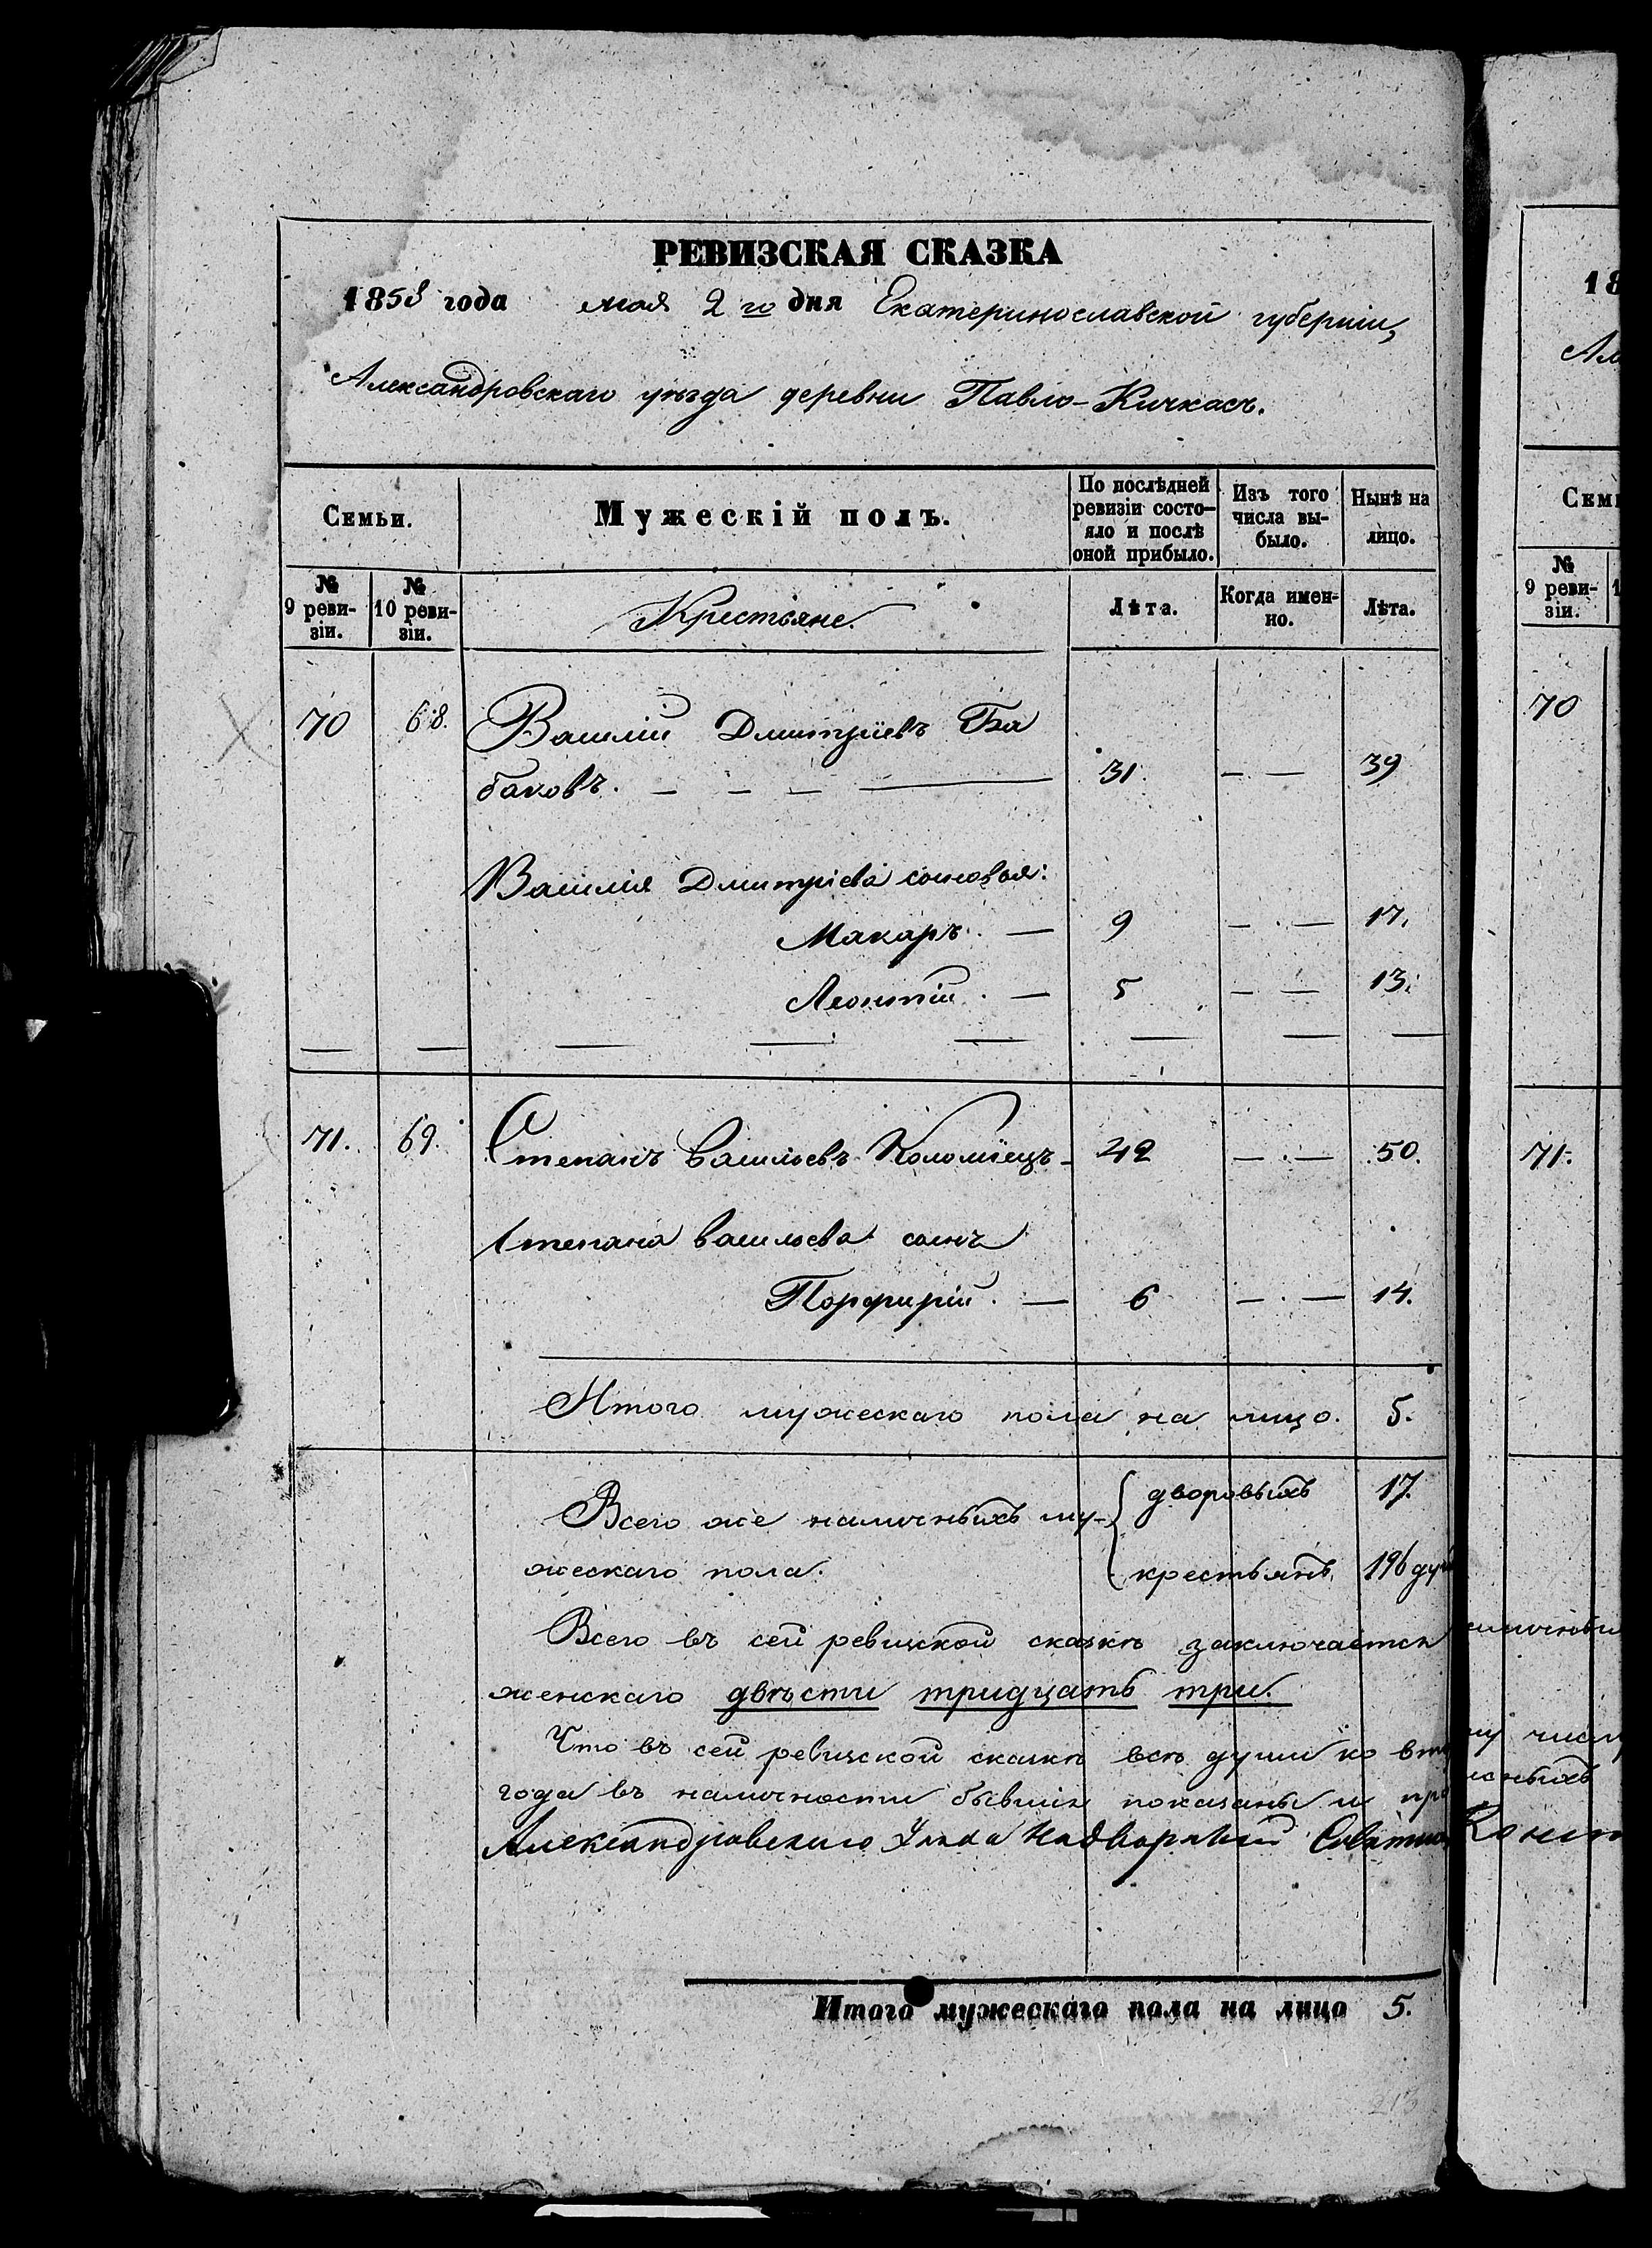 РЕВИЗСКАЯ СКАЗКА
1858 года мая 2го дня Екатеринославской губерніи,
Александровскаго уѣзда деревни Павло-Кичкасъ.
Семьи.
Мужескій полъ.
По послѣдней ревизіи состо-
яло и послѣ оной прибыло.
Изъ того числа вы-
было.
Нынѣ на лицо.
№ 9 реви-
зіи.
№ 10 реви-
зіи.
Крестьяне.
Лѣта.
Когда имен-
но.
Лѣта.
70 68. Василій Дмитріевъ Ба
баковъ. — — — — 31. — — 39
Василія Дмитріева сыновья:
Макаръ. — 9 — . — 17.
Леонтій. — 5 — — 13.
71. 69. Степанъ Васильевъ Коломіецъ - 42 — . — 50.
Степана Васильева сынъ
Порфирій. — 6 — . — 14.
Итого мужескаго пола на лицо. 5.
Всего же наличныхъ му- { дворовыхъ 17.
жескаго пола. крестьянъ 196 душ
Всего въ сей ревизской сказкѣ заключается
женскаго двѣсти тридцать три.
Что въ сей ревизской сказкѣ всѣ души ко вто
года въ наличности бывшія показаны и пра
Александровскаго Уѣзда Надворный Совѣтник
Итого мужескаго пола на лицо 5.
213
18
Ал
Семь
№ 9 реви-
зіи.
70
71.